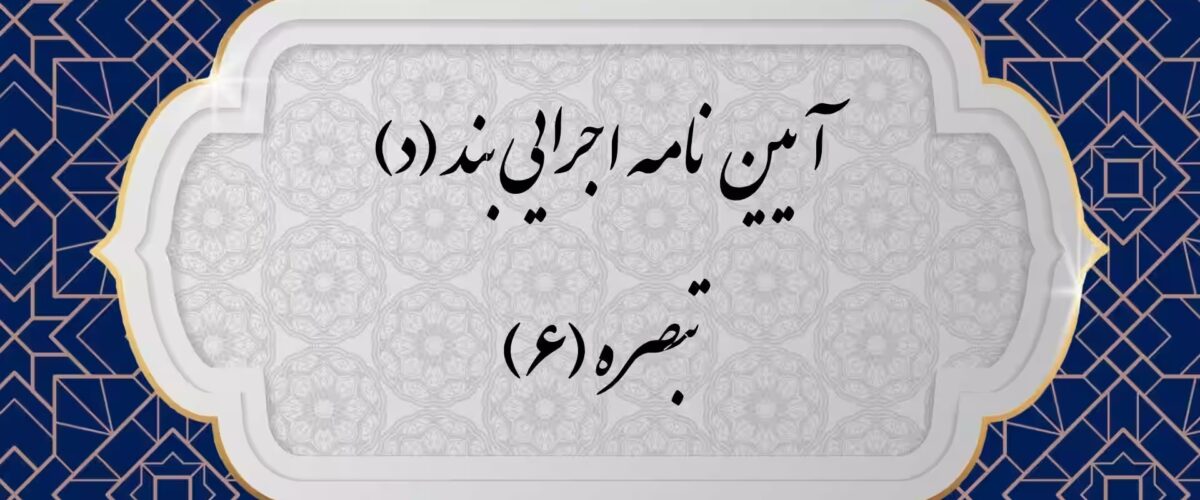 آیین نامه اجرایی بند (د)
تبصره (۶)